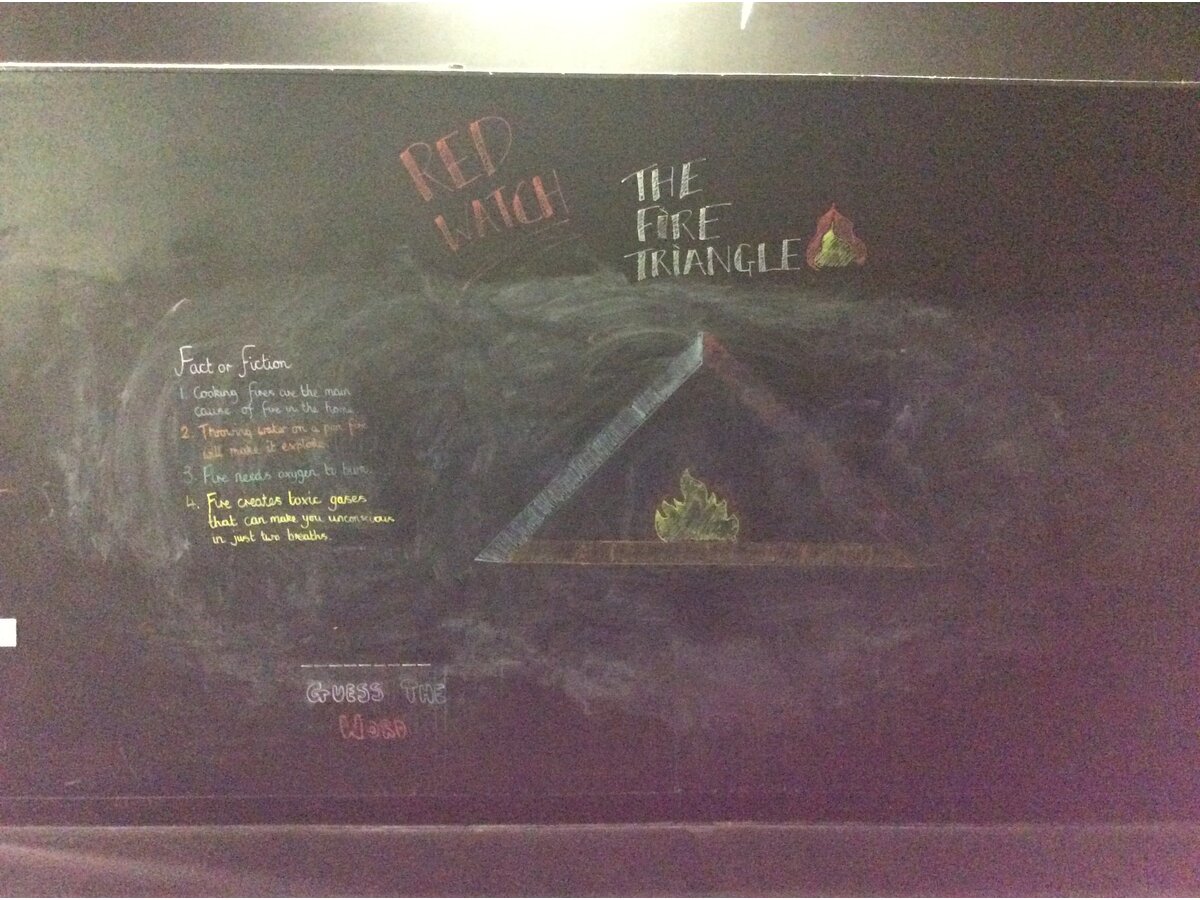 RED
WATCH
THE
FIRE
TRIANGLE
Fact or fiction
1. Cooking fires are the main
cause of fire in the home
2. Throwing water on a pan fire
will make it explode
3. Fire needs oxygen to burn
4. Fire creates toxic gases
that can make you unconscious
in just two breaths.
GUESS THE
WORD